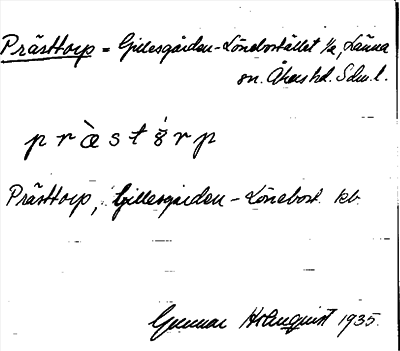 Prästtorp = Gillesgården-Lönebostället 1/2, Länna
sn. Åkers hd. Sdm. l.
præ̀stɵ́rp
Prästtorp, Gillesgården - Lönebost. kb.
Gunnar Holmquist 1935.